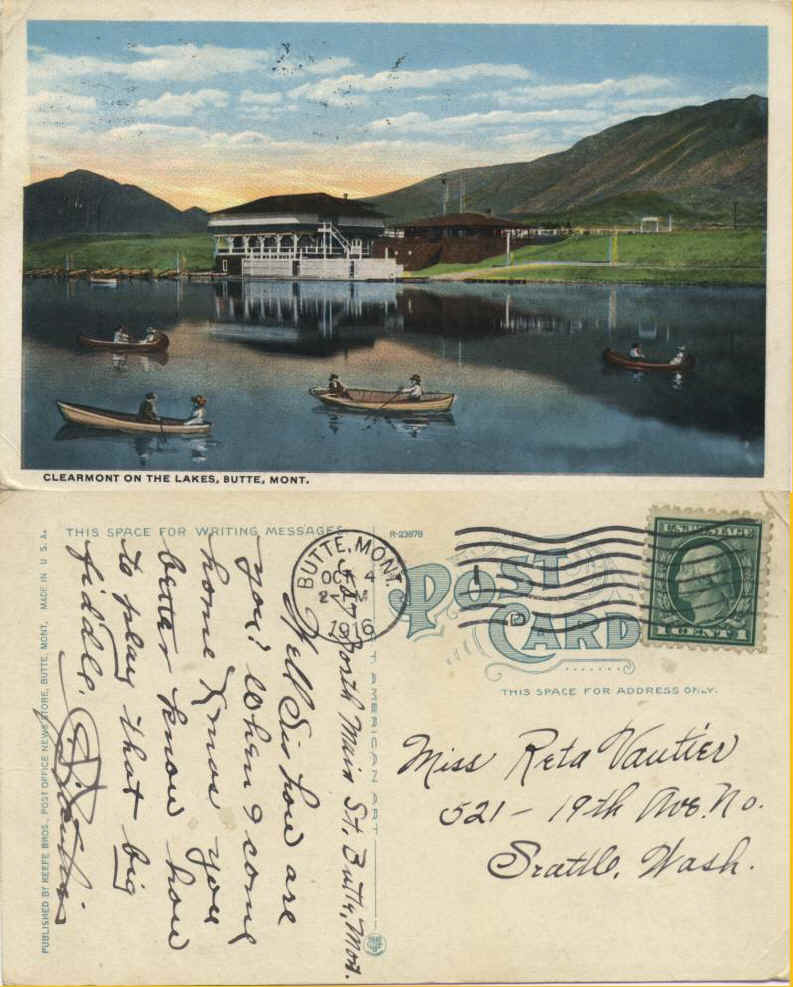 CLEARMONT ON THE LAKES, BUTTE, MONT.
THIS SPACE FOR WRITING MESSAGES
R-23878
BUTTE, MONT.
OCT 4
2 - M
1916
POST
CARD
U.S. POSTAGE
1 CENT 1
THIS SPACE FOR ADDRESS ONLY.
Miss Reta Vautier
521 - 19th Ave. No.
Seattle, Wash.
North Main St. Butte, Mont.
Well Sis how are
you? When I come
home Xmas you
better know how
to play that big
fiddle.
AMERICAN ART
PUBLISHED BY KEEFE BROS., POST OFFICE NEWS STORE, BUTTE, MONT. MADE IN U. S. A.